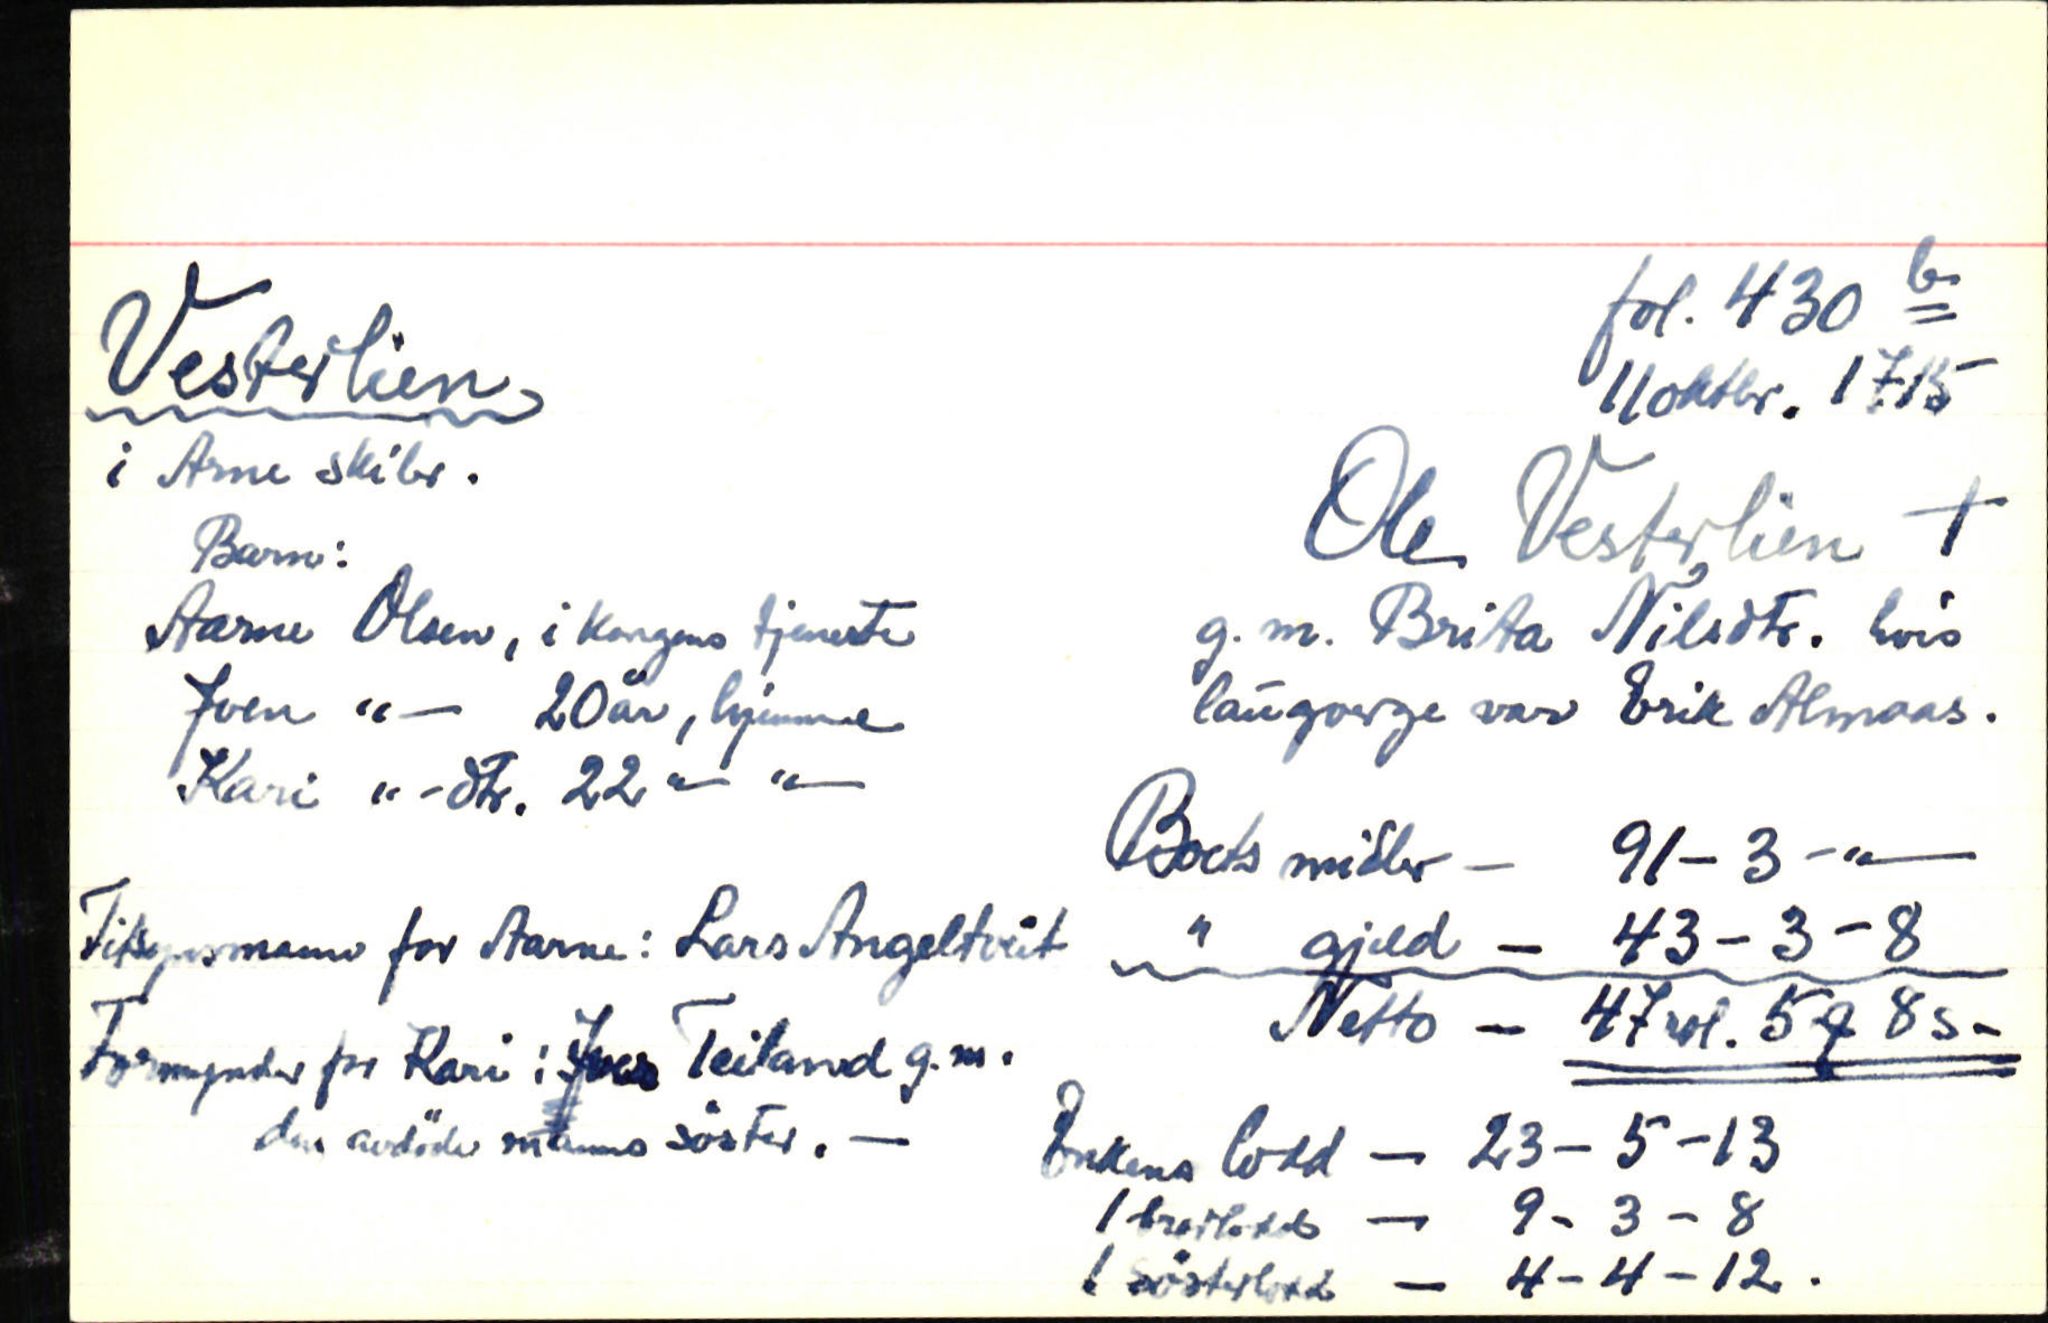 Vesterlien
i Arne skibr.
Barn:
Aarne Olsen, i kongens tjeneste
Iven "— 20 år, hjemme
Kari "-dtr. 22 "— "—
Tilsynsmann for Aarne: Lars Angeltveit
Formynder for Kari: Iver Teiland g.m.
den avdöde manns söster. —
fol. 430 b
11 oktbr. 1715
Ole Vesterlien †
g. m. Brita Nilsdtr. hvis
laugverge var Erik Almaas.
Boets midler — 91 - 3 - "—
" gjeld — 43 - 3 - 8
Netto — 47 rd. 5 q 8 s -
Enkens lodd — 23 - 5 - 13
1 brorlodd — 9 - 3 - 8
1 sösterlodd — 4 - 4 - 12.